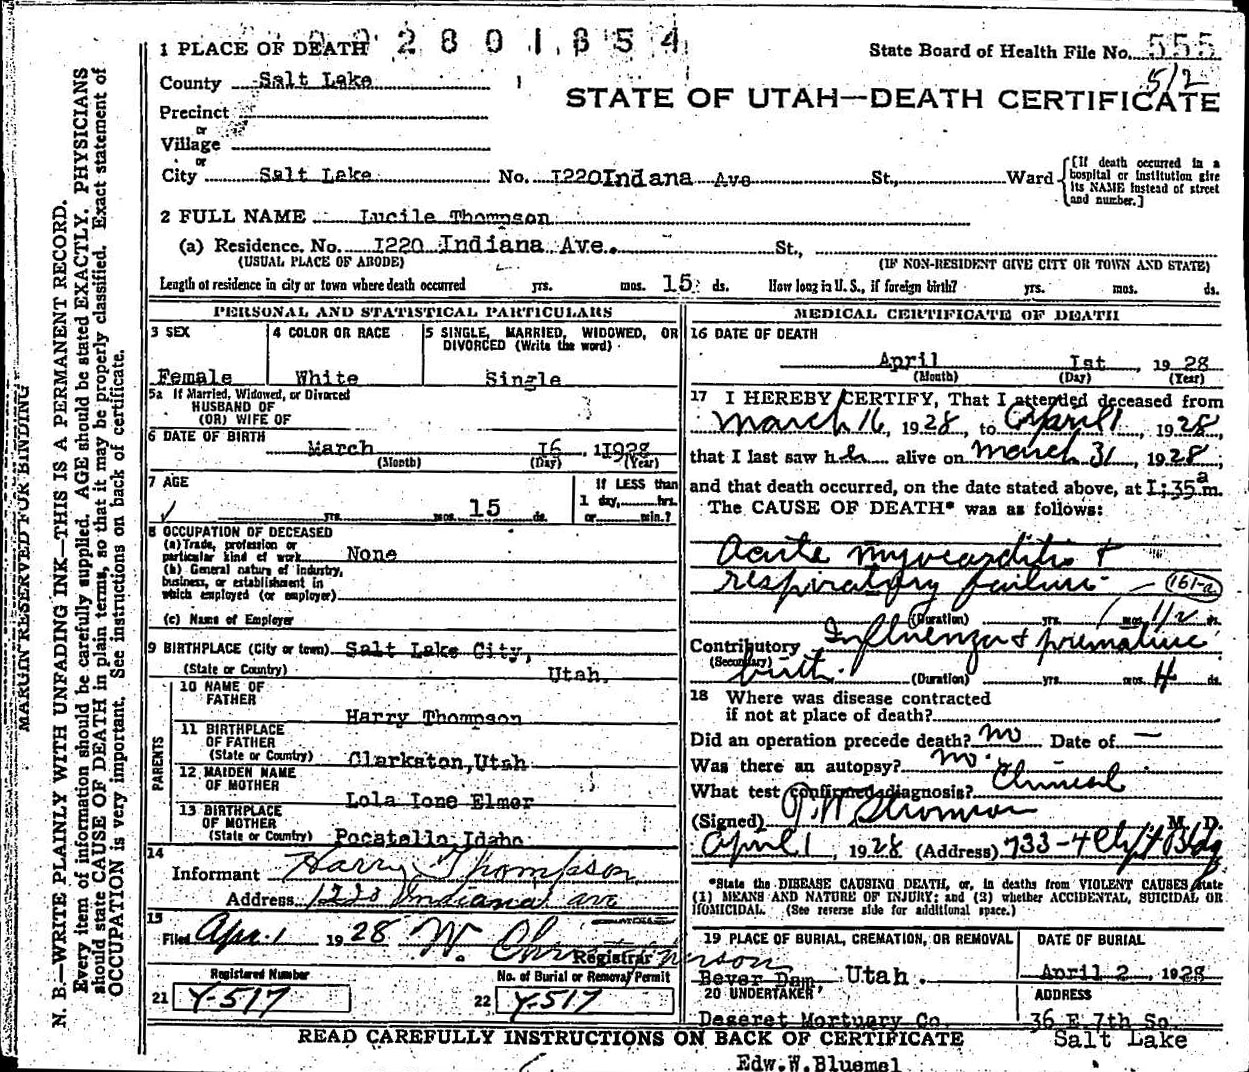 1 PLACE OF DEATH 2801854
State Board of Health File No. 555
512
County Salt Lake
STATE OF UTAH—DEATH CERTIFICATE
Precinct
or
Village
or
City Salt Lake No. I220Indana Ave St., Ward
[If death occurred in a hospital or institution give its NAME instead of street and number.]
2 FULL NAME Lucile Thompson
(a) Residence. No. I220 Indiana Ave. St.,
(USUAL PLACE OF ABODE) (IF NON-RESIDENT GIVE CITY OR TOWN AND STATE)
Length of residence in city or town where death occurred yrs. mos. 15 ds. How long in U. S., if foreign birth? yrs. mos. ds.
PERSONAL AND STATISTICAL PARTICULARS
3 SEX
Female
4 COLOR OR RACE
White
5 SINGLE, MARRIED, WIDOWED, OR
DIVORCED (Write the word)
Single
5a If Married, Widowed, or Divorced
HUSBAND OF
(OR) WIFE OF
6 DATE OF BIRTH
March I6 , 1928
(Month) (Day) (Year)
7 AGE
yrs. mos. 15 ds.
If LESS than
1 day, hrs.
or min.?
8 OCCUPATION OF DECEASED
(a) Trade, profession or
particular kind of work None
(b) General nature of industry,
business, or establishment in
which employed (or employer)
(c) Name of Employer
9 BIRTHPLACE (City or town) Salt Lake City,
(State or Country) Utah.
PARENTS
10 NAME OF
FATHER
Harry Thompson
11 BIRTHPLACE
OF FATHER
(State or Country) Clarkston,Utah
12 MAIDEN NAME
OF MOTHER
Lola Ione Elmer
13 BIRTHPLACE
OF MOTHER
(State or Country) Pocatello Idaho
14
Informant Harry Thompson
Address 1220 Indiana ave
15
Filed Apr. 1 1928 W. Christenson
Registrar
Registered Number
21 Y-517
No. of Burial or Removal Permit
22 Y-517
MEDICAL CERTIFICATE OF DEATH
16 DATE OF DEATH
April Ist , 1928
(Month) (Day) (Year)
17 I HEREBY CERTIFY, That I attended deceased from
March 16, 1928, to April 1, 1928,
that I last saw her alive on March 31, 1928,
and that death occurred, on the date stated above, at I;35 a m.
The CAUSE OF DEATH* was as follows:
Acute myocarditis +
respiratory failure
161-a
(Duration) yrs. mos. 1/2 ds.
Contributory Influenza & premature
(Secondary) birth. (Duration) yrs. mos. 4 ds.
18 Where was disease contracted
if not at place of death?
Did an operation precede death? no Date of —
Was there an autopsy? no.
What test confirmed diagnosis? Clinical
(Signed) M. D.
April 1, 1928 (Address) 733-4 Clift Bldg
*State the DISEASE CAUSING DEATH, or, in deaths from VIOLENT CAUSES state
(1) MEANS AND NATURE OF INJURY; and (2) whether ACCIDENTAL, SUICIDAL OR
HOMICIDAL. (See reverse side for additional space.)
19 PLACE OF BURIAL, CREMATION, OR REMOVAL
Bever Dam, Utah.
DATE OF BURIAL
April 2 , 1928
20 UNDERTAKER
Deseret Mortuary Co.
ADDRESS
36 E.7th So.
Salt Lake
READ CAREFULLY INSTRUCTIONS ON BACK OF CERTIFICATE
Edw.W.Bluemel
MARGIN RESERVED FOR BINDING
N. B.—WRITE PLAINLY WITH UNFADING INK—THIS IS A PERMANENT RECORD.
Every item of information should be carefully supplied. AGE should be stated EXACTLY. PHYSICIANS
should state CAUSE OF DEATH in plain terms, so that it may be properly classified. Exact statement of
OCCUPATION is very important. See instructions on back of certificate.